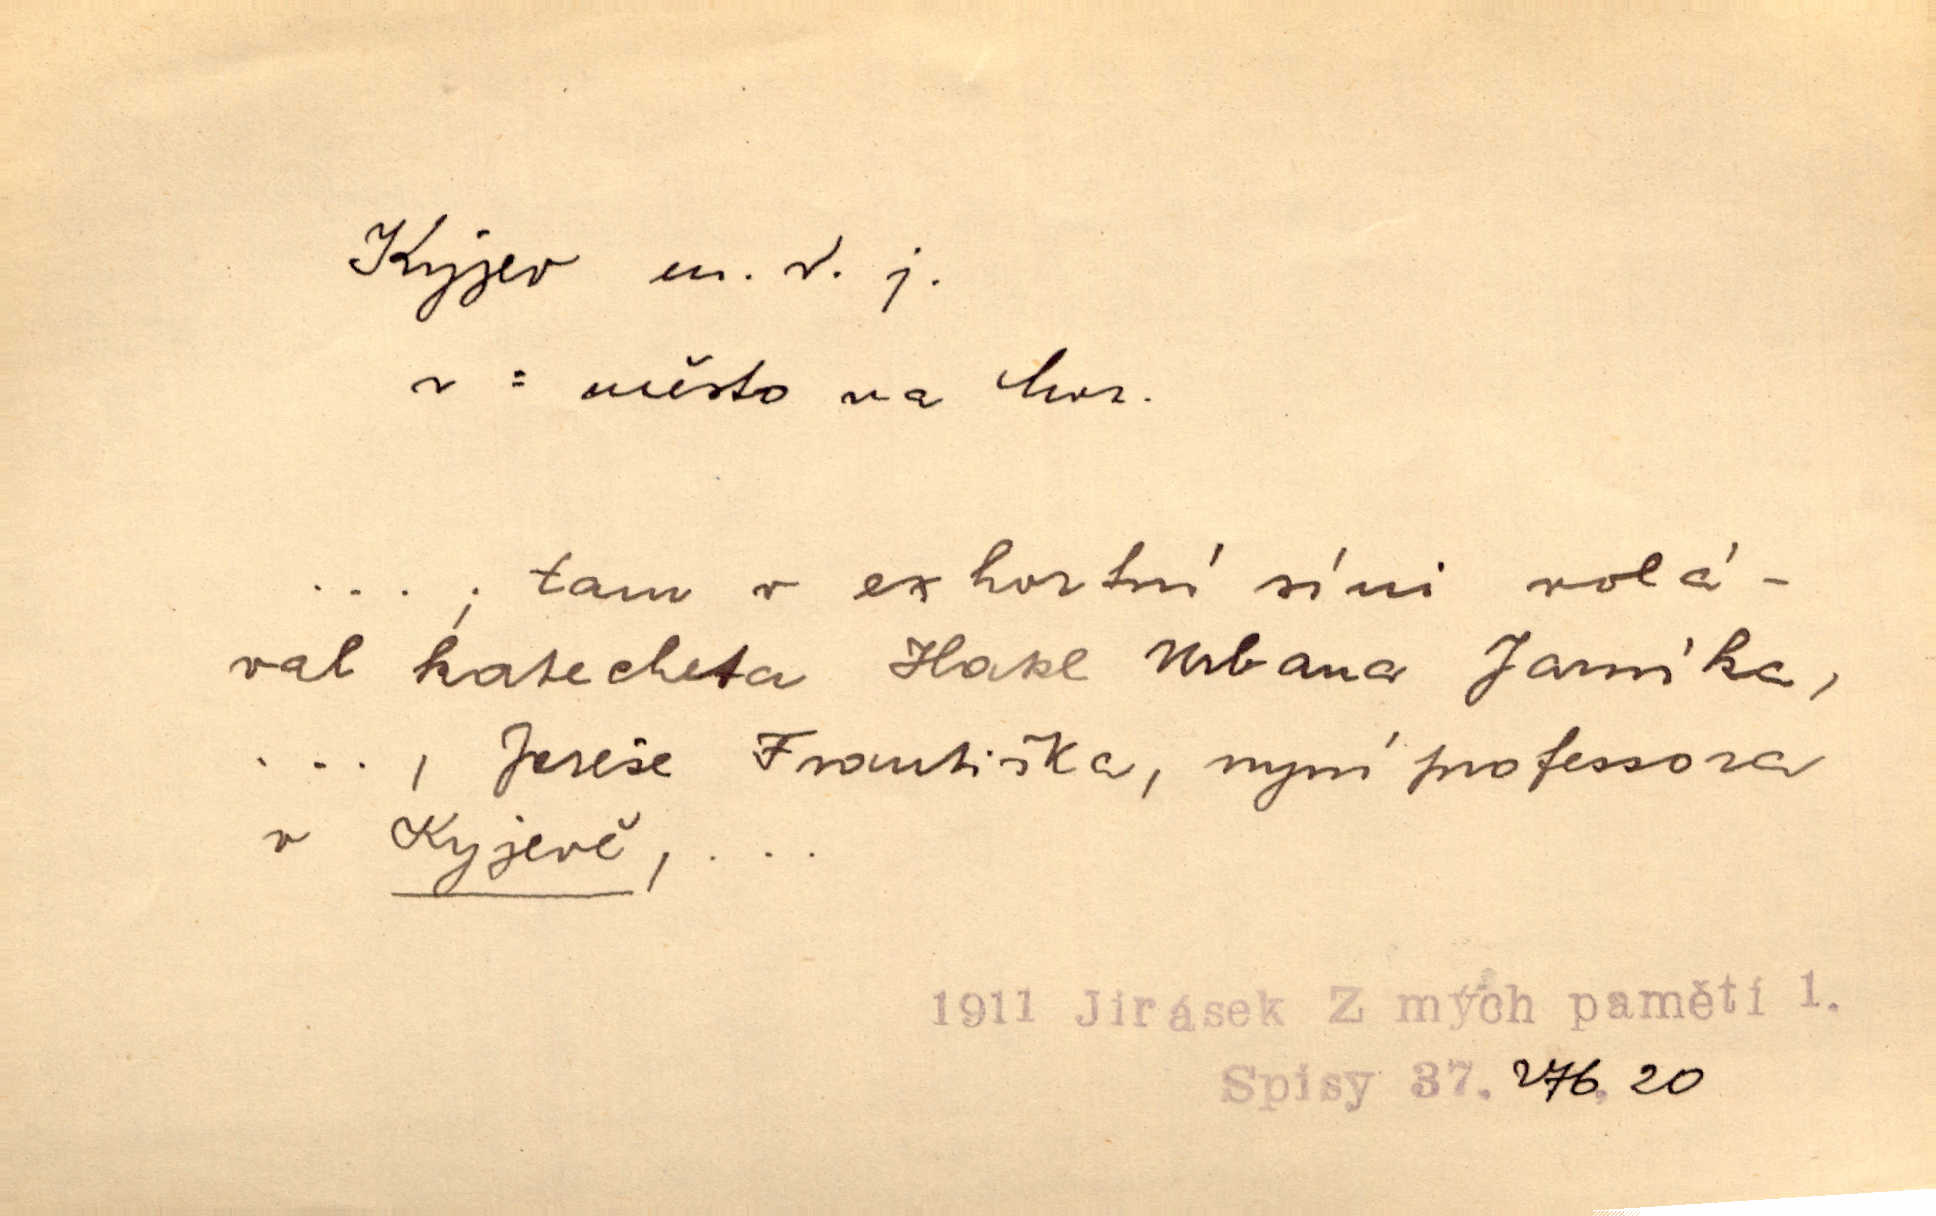 Kyjev m. V. j.
v = město na hor.
. . . . ; tam v exhortní síni volá-
val katecheta Hakl Urbana Jarníka,
. . . , Jereše Františka, nyní professora
v Kyjevě, . . .
1911 Jirásek Z mých pamětí 1.
Spisy 37. 276, 20